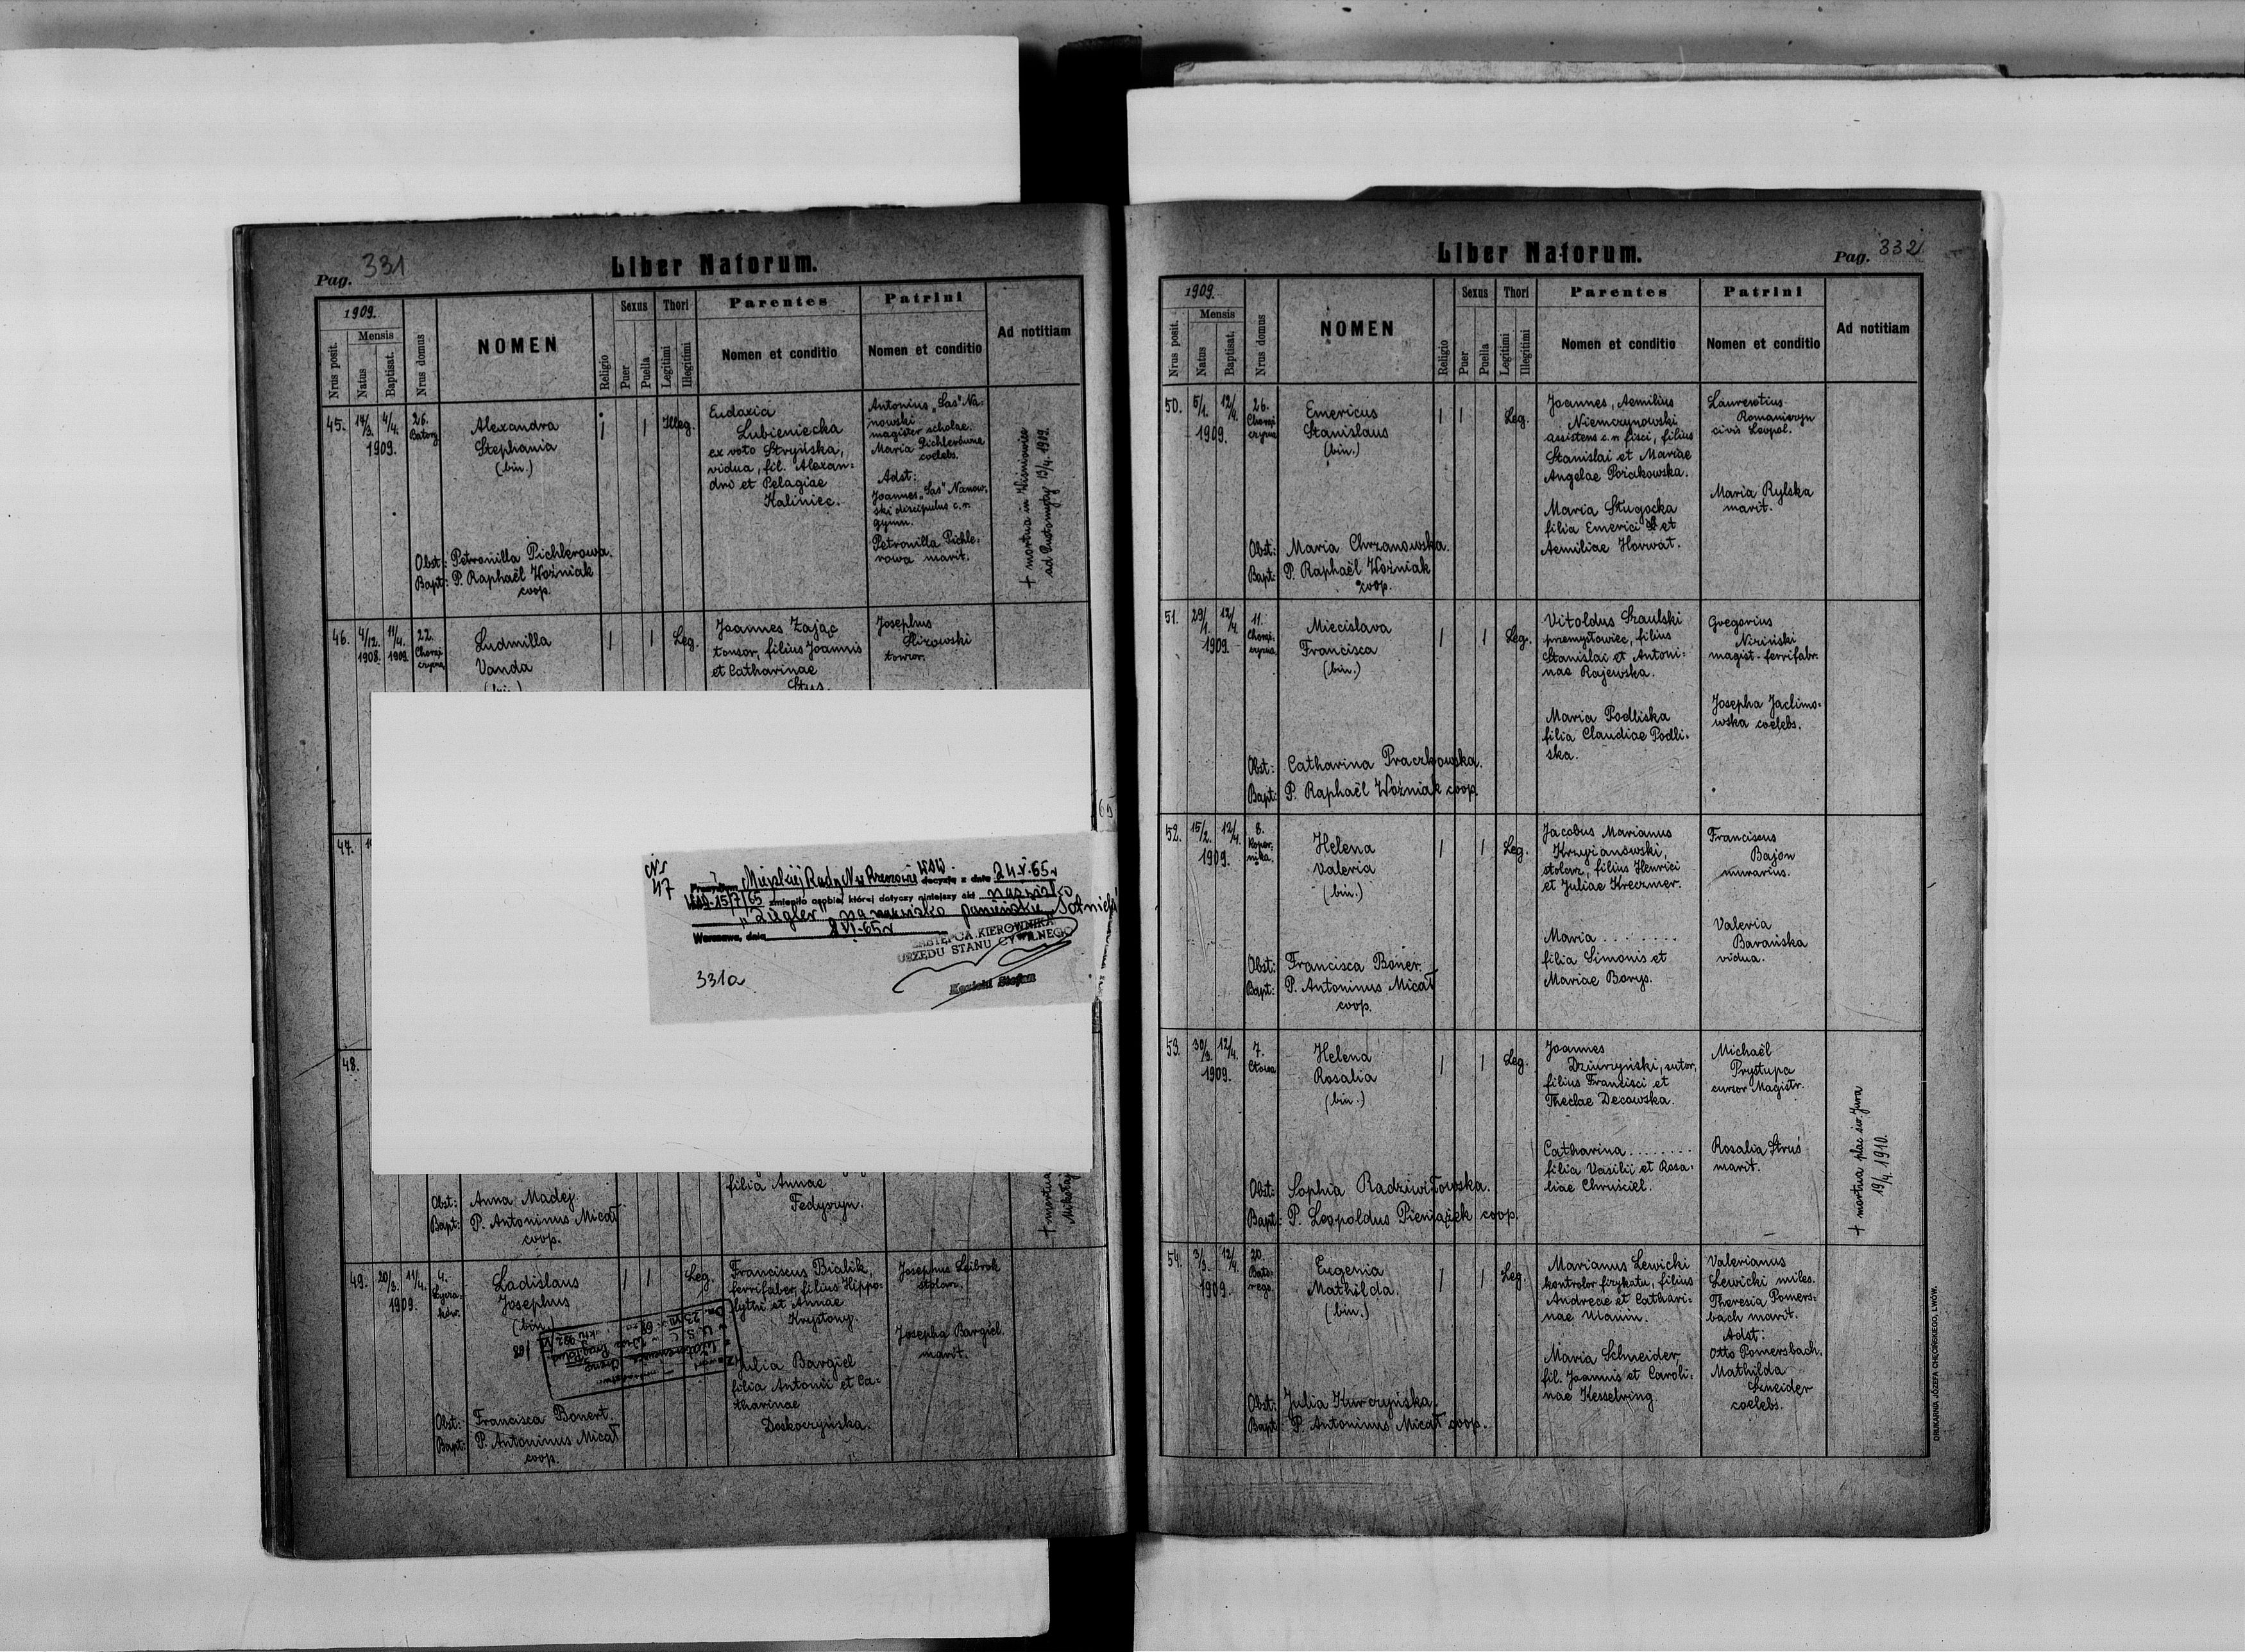 Pag. 331
Liber Natorum.
1909.
Nrus posit.
Mensis
Natus
Baptisat.
Nrus domus
NOMEN
Religio
Sexus
Puer
Puella
Thori
Legitimi
Illegitimi
Parentes
Nomen et conditio
Patrini
Nomen et conditio
Ad notitiam
45.
14/3. 4/4.
1909.
26.
Batory
Alexandra
Stephania
(bin.)
Obst: Petronilla Pichlerowa.
Bapt: P. Raphaël Woźniak
coop.
Illeg.
Eudoxia
Lubieniecka
ex voto Stryńska,
vidua, fil. Alexan-
dri et Pelagiae
Kaliniec.
Antonius „Sas" Na-
nowski
magister scholae.
Maria Pichlerówna
coelebs.
Adst:
Joannes „Sas" Nanow-
ski discipulus c. r.
gymn.
Petronilla Pichle-
rowa marit.
† mortua in Wiśniowiec
13/4. 1909.
46.
4/12. 11/4.
1908. 1909
22.
Chorąż
czyzna
Ludmilla
Vanda
Leg.
Joannes Zając
tonsor, filius Joannis
et Catharinae
Josephus
47.
Nr
47
Miejskiej Rady N. w Rzeszowie decyzją z dnia 24.V.65 r
15/7/65 zmieniło osobie, której dotyczy niniejszy akt nazwisko
„Ziegler" na nazwisko panieńskie
Warszawa, dnia 2 VI. 65 r
ZASTĘPCA KIEROWNIKA
URZĘDU STANU CYWILNEGO
Kozicki Stefan
331a
65
48.
Obst: Anna Madej.
Bapt: P. Antoninus Micał
coop.
filia Annae
Fedyszyn.
† mortua
Mikołaj
49.
20/3. 11/4.
1909.
4.
Ladislaus
Josephus
(bin.)
Obst: Francisca Bonert.
Bapt: P. Antoninus Micał
coop.
Leg.
Franciscus Bialik,
ferrifaber, filius Hippo-
lythi et Annae
Krystony.
Julia Bargiel
filia Antonii et Ca-
tharinae
Doskoczyńska.
Josephus Leibrok
stolarz.
Josepha Bargiel
marit.
Liber Natorum.
Pag. 332
1909.
Nrus posit.
Mensis
Natus
Baptisat.
Nrus domus
NOMEN
Religio
Sexus
Puer
Puella
Thori
Legitimi
Illegitimi
Parentes
Nomen et conditio
Patrini
Nomen et conditio
Ad notitiam
50.
5/1. 12/4.
1909.
26.
Chorąż
czyzna
Emericus
Stanislaus
(bin.)
Obst: Maria Chrzanowska.
Bapt: P. Raphaël Woźniak
coop.
Leg.
Joannes, Aemilius
Niemczynowski
assistens c. r. fisci, filius
Stanislai et Mariae
Angelae Porakowska.
Maria Sługocka
filia Emerici et
Aemiliae Horwat.
Laurentius
Romaniszyn
civis Leopol.
Maria Rylska
marit.
51.
29/1. 12/4.
1909.
11.
Chorąż-
czyzna
Miecislava
Francisca
(bin.)
Obst: Catharina Praczkowska.
Bapt: P. Raphaël Woźniak coop.
Leg.
Vitoldus Szaulski
przemysłowiec, filius
Stanislai et Antoni-
nae Rajewska.
Maria Podliska
filia Claudiae Podli-
ska.
Gregorius
Niziński
magist-ferrifabr.
Josepha Jachimo-
wska coelebs.
52.
15/2. 12/4.
1909.
8.
Koper-
nika.
Helena
Valeria
(bin.)
Obst: Francisca Boner.
Bapt: P. Antoninus Micał
coop.
Leg.
Jacobus Marianus
Krzyżanowski,
stolarz, filius Henrici
et Juliae Kreczmer.
Maria . . . . . . . .
filia Simonis et
Mariae Borys.
Franciscus
Bajon
murarius.
Valeria
Barańska
vidua.
53.
30/3. 12/4.
1909.
7.
Helena
Rosalia
(bin.)
Obst: Sophia Radziwiłowska.
Bapt: P. Leopoldus Pieniążek coop.
Leg.
Joannes
Dziurzyński, sutor,
filius Francisci et
Theclae Decowska.
Catharina . . . . . . . .
filia Vasilii et Rosa-
liae Chruściel.
Michaël
Prystupa
cursor Magistr.
Rosalia Struś
marit.
† mortua plac św. Jura
19/4. 1910.
54.
3/3. 12/4.
1909.
20.
Bato-
rego.
Eugenia
Mathilda.
(bin.)
Obst: Julia Kurczyńska.
Bapt: P. Antoninus Micał coop.
Leg.
Marianus Lewicki
kontrolor fizykatu, filius
Andreae et Cathari-
nae Maurin.
Maria Schneider,
fil. Joannis et Caroli-
nae Kesselring.
Valerianus
Lewicki miles.
Theresia Pomers-
bach marit.
Adst:
Otto Pomersbach.
Mathilda
Szneider
coelebs.
DRUKARNIA JÓZEFA CHĘCIŃSKIEGO, LWÓW.